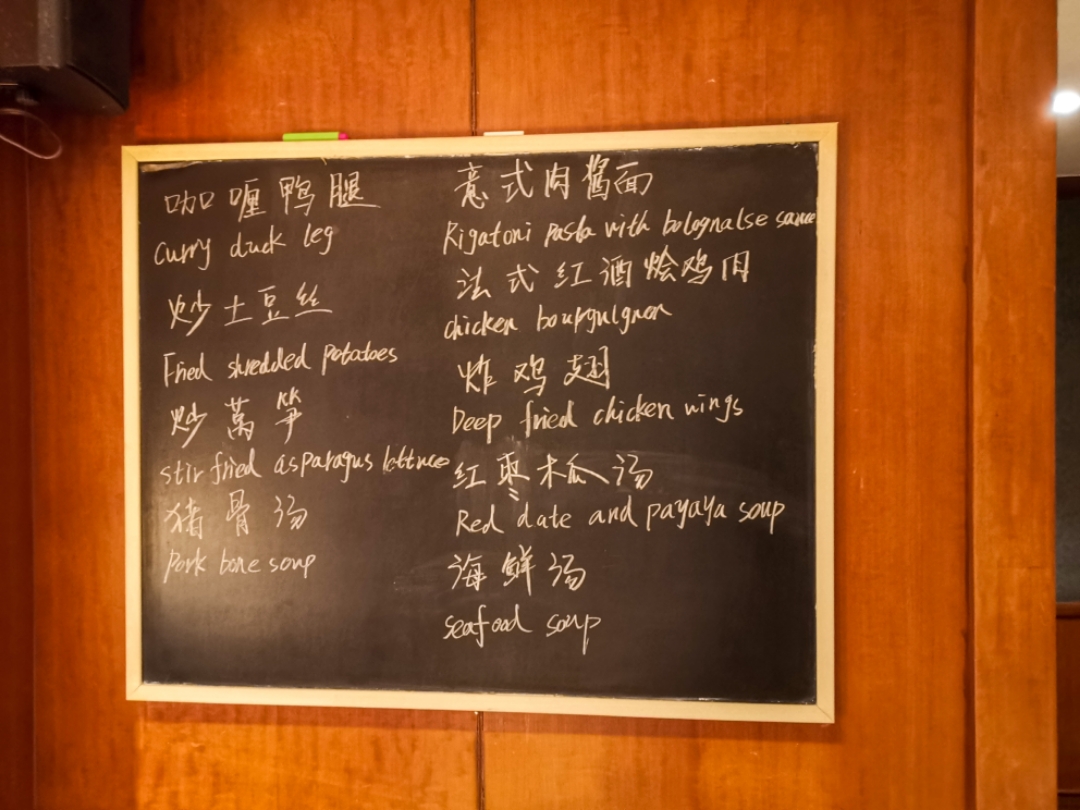 咖喱鸭腿
Curry duck leg
炒土豆丝
Fried shredded potatoes
炒萵笋
stir fried asparagus lettuce
猪骨汤
Pork bone soup
意式肉酱面
Rigatoni pasta with bolognalse sauce
法式红酒烩鸡肉
chicken bourguignon
炸鸡翅
Deep fried chicken wings
红枣木瓜汤
Red date and payaya soup
海鲜汤
seafood soup